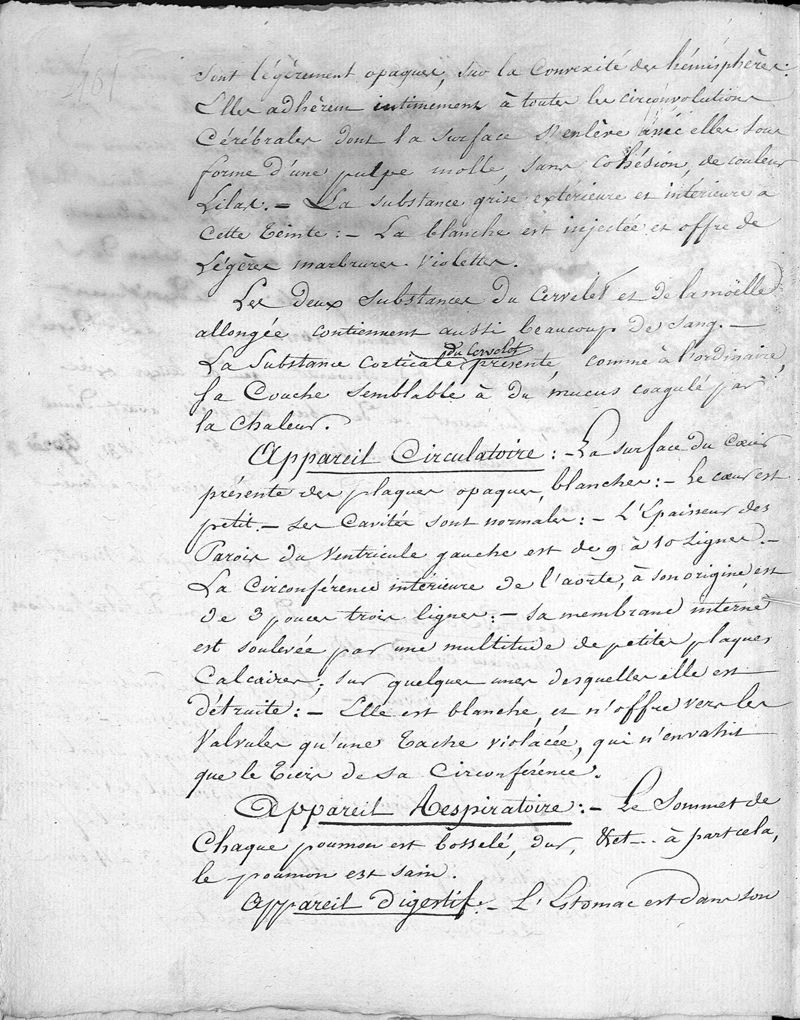 sont légèrement opaques, sur la Convexité des hémisphères:
Elles adhèrent intimement à toutes les circonvolutions
Cérébrales dont la surface S'enlève avec elles sous
forme d'une pulpe molle, sans Cohésion, de couleur
Lilas. – La substance grise exterieure et intérieure a
Cette teinte: – La blanche est injectée et offre de
Légères marbrures violettes.
Les deux Substances du Cervelet et de la moëlle
allongée contiennent aussi beaucoup de Sang. –
du Cervelet
La Substance Corticale présente, comme à l'ordinaire,
sa Couche Semblable à du mucus coagulé par
la Chaleur.
Appareil Circulatoire: – La surface du Cœur
présente des plaques opaques, blanches: – Le cœur est
petit. – Ses Cavités sont normales: – L'Epaisseur des
Parois du Ventricule gauche est de 9 à 10 Lignes. –
La Circonférence intérieure de l'aorte, à son origine, est
de 3 pouces trois lignes: – sa membrane interne
est soulevée par une multitude de petites plaques
Calcaires; sur quelques unes desquelles elle est
détruite: – Elle est blanche, et n'offre vers les
Valvules qu'une Tache violacée, qui n'envahit
que le tiers de Sa Circonférence.
Appareil Respiratoire: – Le Sommet de
Chaque poumon est bosselé, dur, &ct-.. à part cela,
le poumon est sain.
Appareil Digestif. – L'Estomac est dans son